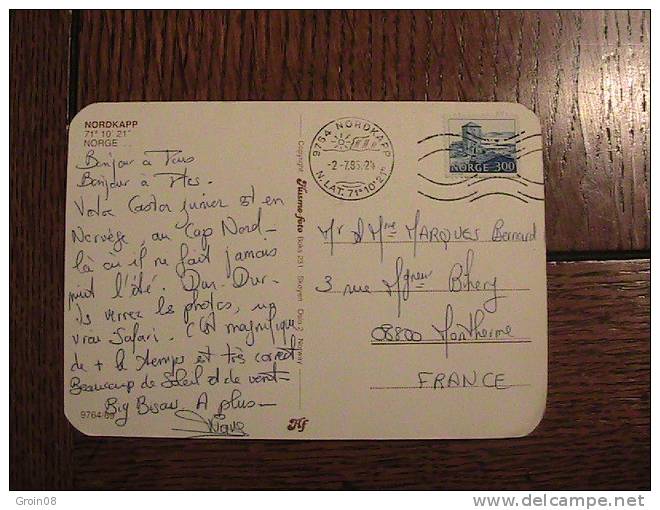 NORDKAPP
71° 10' 21"
NORGE
Bonjour à Tous
Bonjour à Ttes.
Votre Castor junior est en
Norvège, au Cap Nord-
là où il ne fait jamais
nuit l'été.
verrez les photos, un
vrai Safari. C'est magnifique
de + le temps est très correct
Beaucoup de Soleil et de vent-
Big Bisous A plus-
9764/89
Copyright Husmo-foto Boks 231 Skøyen Oslo 2 Norway
Hf
9764 NORDKAPP
-2-7.85.24
N.LAT. 71°10'21"
NORGE 300
Mr et Mme MARQUES Bernard
3 rue Mgneur Bihery
08800 Montherme
FRANCE
Groin08
delcampe.net